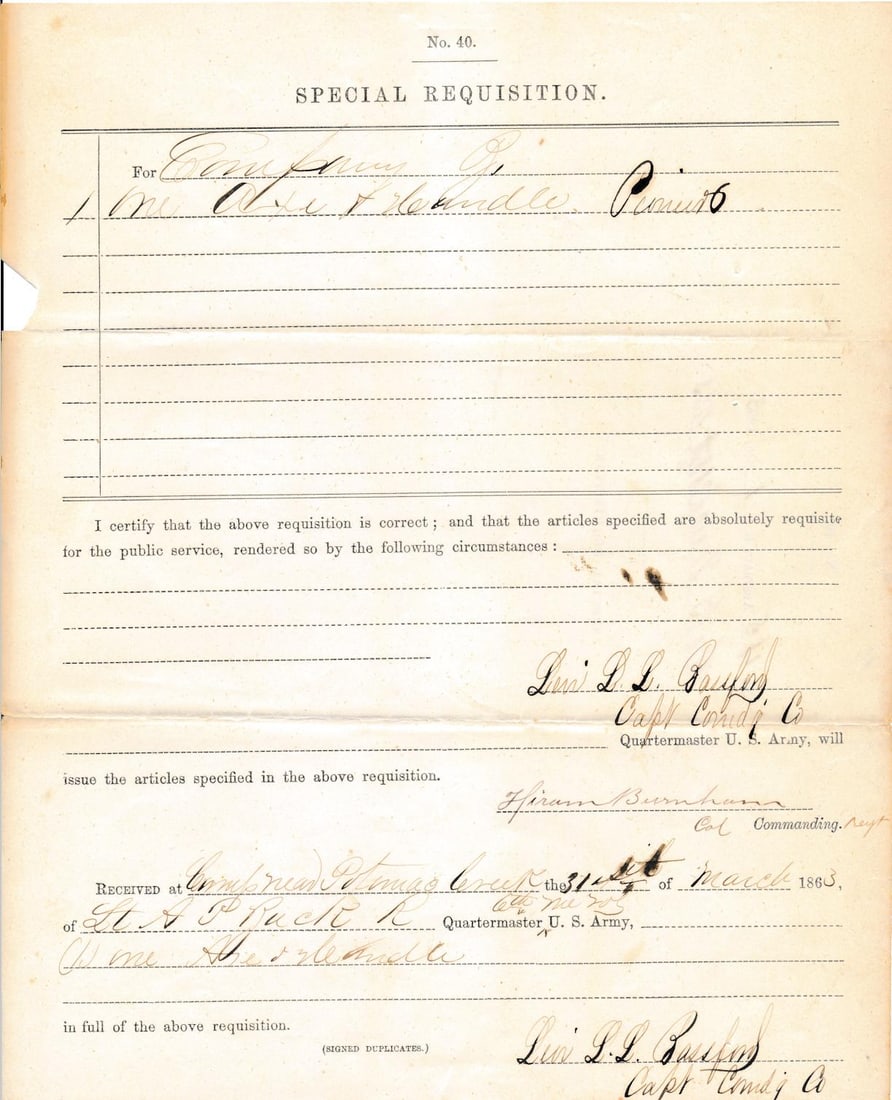 No. 40.
SPECIAL REQUISITION.
For Company G,
1 One Axe & Handle. Pioniers
I certify that the above requisition is correct; and that the articles specified are absolutely requisite
for the public service, rendered so by the following circumstances:
Levi L. L. Bassford
Capt Comdg Co
Quartermaster U. S. Army, will
issue the articles specified in the above requisition.
Hiram Burnham
Col Commanding. Regt
RECEIVED at Camp near Potomac Creek the 31 of March 1863,
6th Me Vol
of Lt A P Quartermaster U. S. Army,
(1) one Axe & Handle
in full of the above requisition.
(SIGNED DUPLICATES.)
Levi L. L. Bassford
Capt Comdg Co